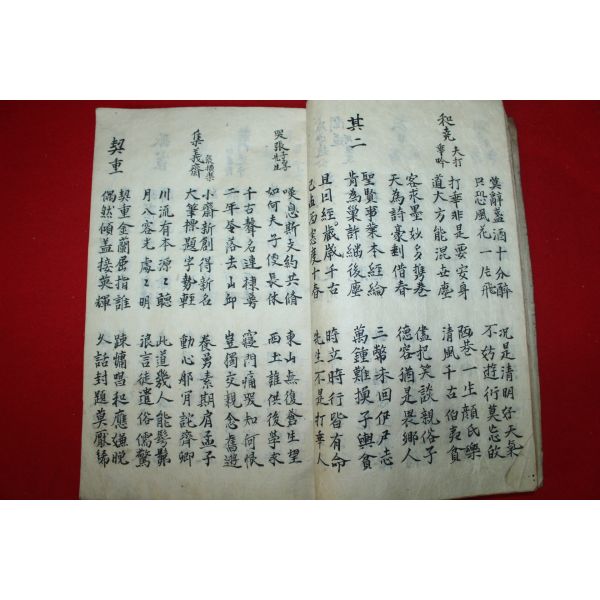 莫辭盞酒十分醉 況是清明好天氣
只恐風花一片飛 不妨遊衍莫忘
和堯夫打乖吟
打乖非是要安身 陋巷一生顏氏樂
道大方能混世塵 清風千古伯夷貧
客求墨妙多携卷 儘把笑談親俗子
天為詩豪剩借春 德容猶是畏鄉人
其二
聖賢事業本經綸 三幣未回伊尹志
肯為巢許繼後塵 萬鍾難換子輿貧
且因經歲千古 時立時行皆有命
已占西室度十春 先生不是打乖人
哭張子厚先生
嘆息斯文約共脩 東山無復蒼生望
如何夫子便長休 西土誰供後學求
千古聲名連棣萼 寢門痛哭知何恨
二年零落去山邱 豈獨交親念舊遊
集義齋
小齋新創得新名 養勇素期肩孟子
大筆標題字勢輕 動心那肎詫齊卿
川流有本源ミ聽 此道幾人能髣髴
月入容光處ミ明 浪言徒遣俗儒驚
契重
契重金蘭屈指誰 踈慵唱和應嫌晚
偶然傾盖接英輝 久話封題莫厭稀